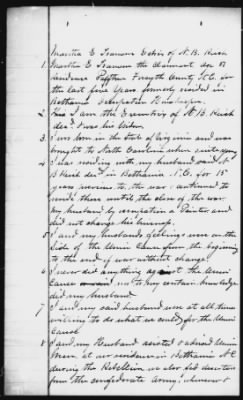 1
Martha E Transou Extrix of N. B. Keish
1. Martha E Transou the claimant
residence Pfafftown Forsyth County N.C. for
the last five years formerly resided in
Bethania Occupation Housekeeper.
2. I am the Executrix of N. B. Keish
decd I was his widow
3. I was born in the State of Virginia and was
brought to North Carolina when quite young
4. I was residing with my husband said N.
B Keish decd in Bethania N.C. for 15
years previous to the war & continued to
reside there until the close of the war.
My husband by occupation a Painter and
did not change his business.
5 I and my husbands feelings were on the
side of the Union Cause from the beginning
to the end of war without change.
6 I never did anything against the Union
Cause nor to my certain knowledge
did my husband
7 I and my said husband were at all times
willing to do what we could for the Union
Cause
8 I and my Husband assisted & advised Union
Men at our residence in Bethania N.C
during the Rebellion we also fed deserters
from the confederate army, whenever &